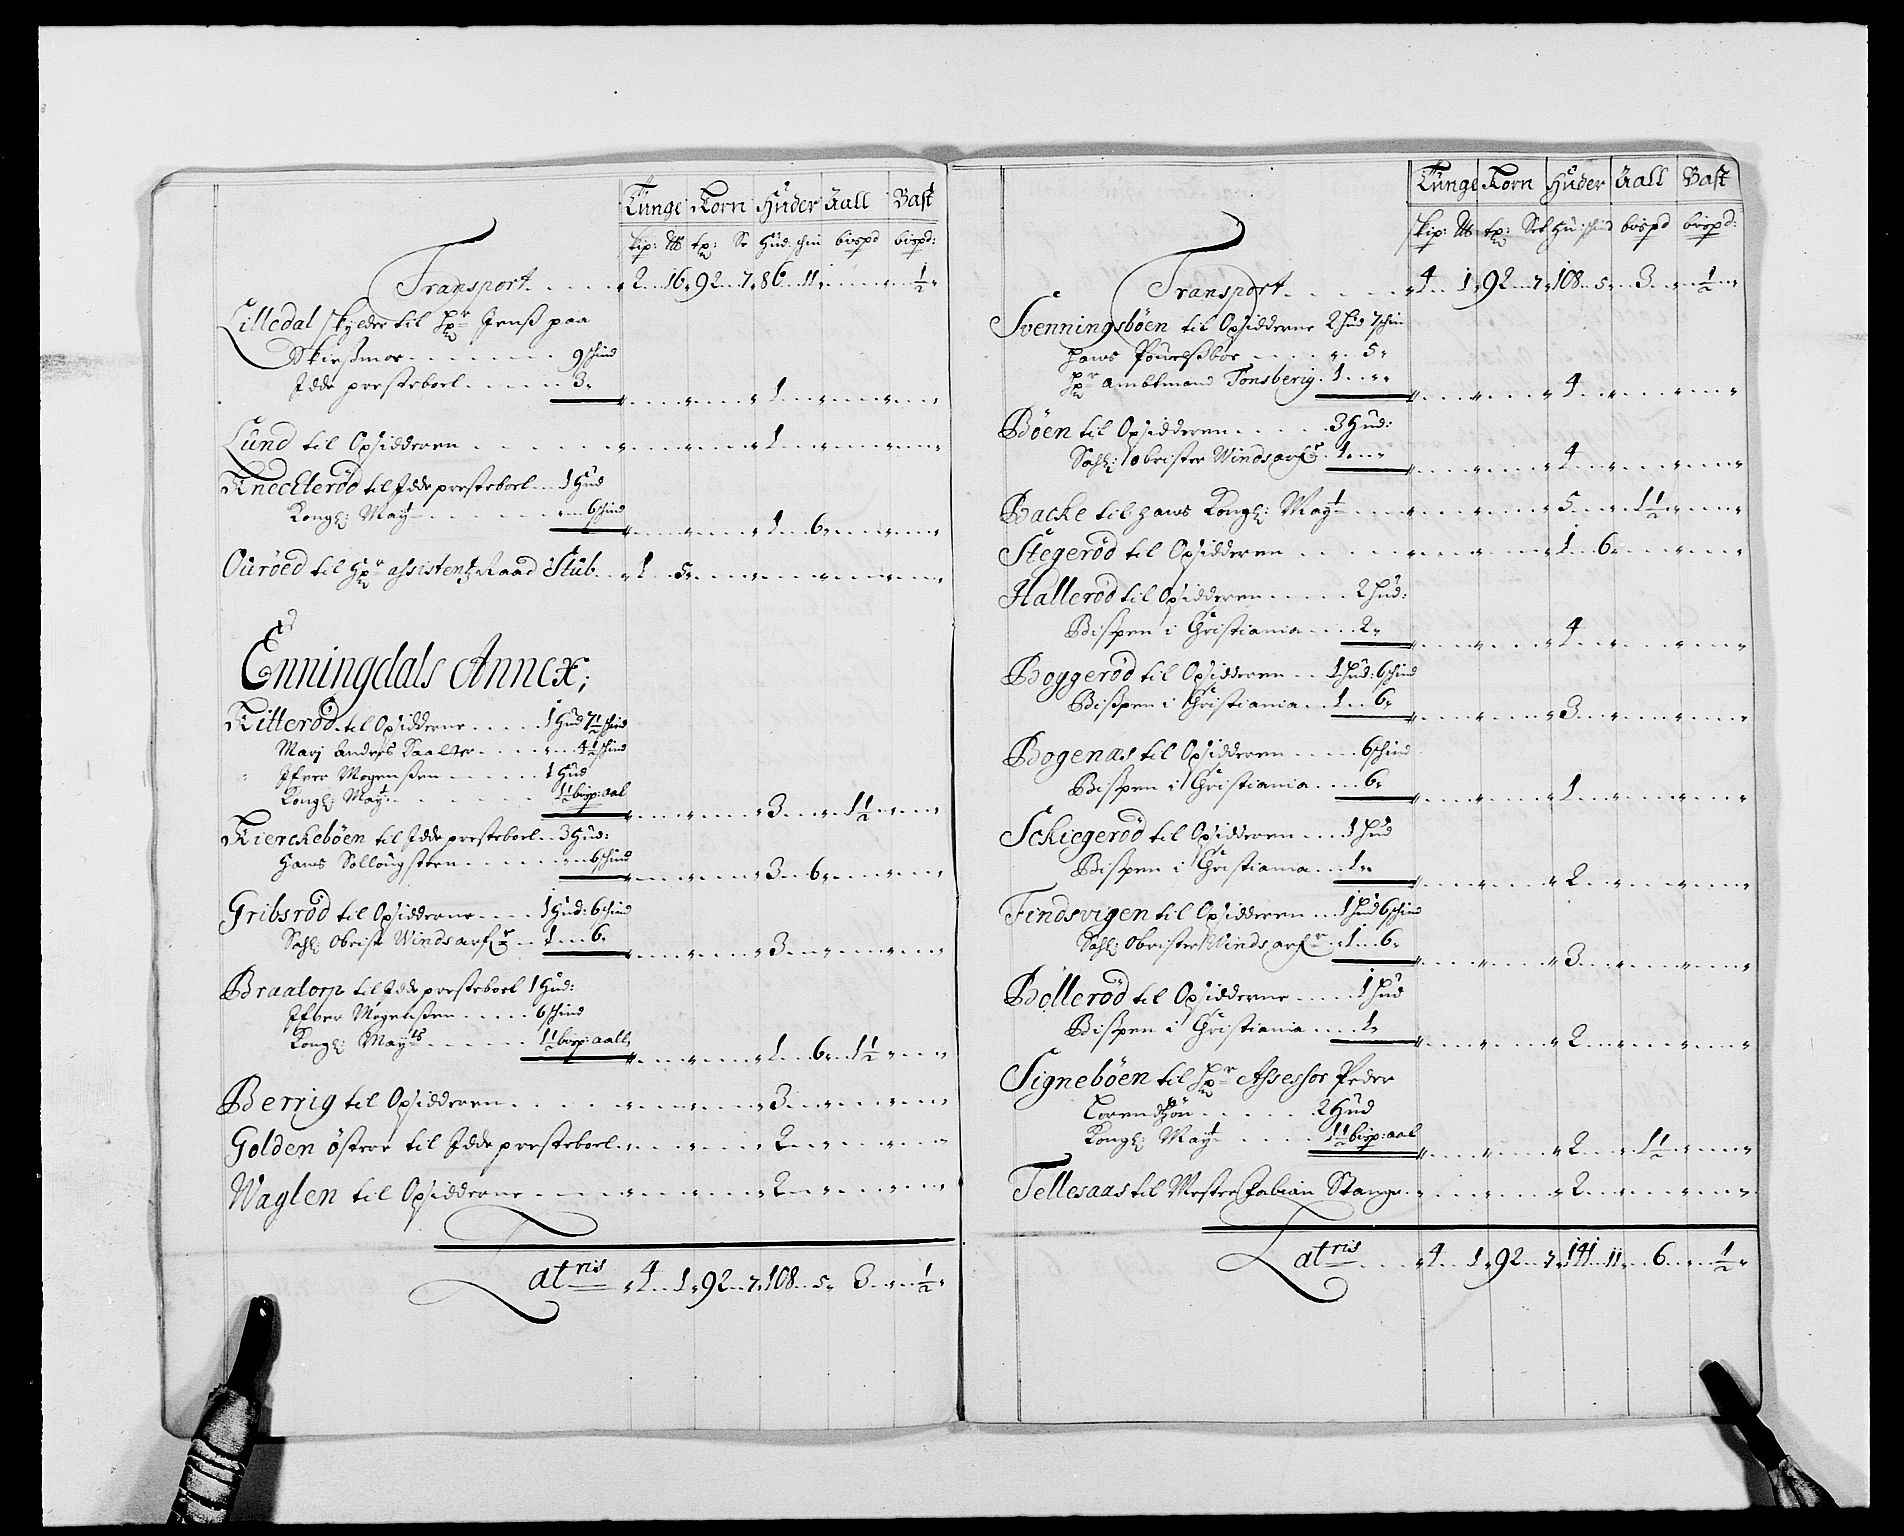 Tunge Korn Huder Aall Bast
skip: ℔ tp: Se Hud: schin bispd bispd:
Transport . . . . . 2 . . 16 . 92 . . 7 . 86 . . 11 . . . . . ½
Lilledal skylder til Hr Jenß paa
Skießmoe . . . . . . . 9 schind
Idde presteboel . . . . . 3 . . . . . . . . 1 . . . . .
Lund til Opsidderen . . . . . . . . . . 1 . . . . .
Knechterød til Idde presteboel . . 1 Hud
Kongl: Mayt . . . . . . 6 schind . . . . . 1 . . 6 . . . . .
Ouroed til Hr assistentz Raad Stub . . . 1 . . 5 . . . . . . . .
Enningdals Annex;
Kitterød til Opsidderne . . . . . 1 Hud 7½ schind
Marj Anders Saaller . . . . . . 4½ schind
Ifver Mogenßen . . . . . . 1 Hud
Kongl: Mayt . . . . . . 1½ bisp: aal . . . . . 3 . . . . 1½ . . . .
Kierckebøen til Idde presteboel . . 3 Hud:
Hans Sollougsteen . . . . . . . . 6 schind . . . . . 3 . . 6 . . . . .
Gribsrød til Opsidderne . . . . 1 Hud: 6 schind
Sahl: Obrist Winds arfr . . 1 . . . 6 . . . . . . 3 . . . . .
Braatorp til Idde presteboel 1 Hud:
Ifver Mogenßen . . . . . 6 schind
Kongl: Mayts . . . . . . 1½ bisp: aall . . . . . 1 . . 6 . 1½ . . .
Berrig til Opsidderen . . . . . . . . . 3 . . . . .
Golden østere til Idde presteboel . . . . . . 2 . . . . .
Waglen til Opsidderne . . . . . . . . . 2 . . . . .
Latris . 4 . . 1 . 92 . . 7 . 108 . . 5 . . 3 . . . ½
Tunge Korn Huder Aall Bast
skip: ℔ tp: Set Hu: schind bispd bispd:
Transport . . . . . 4 . . 1 . 92 . . 7 . 108 . . 5 . . 3 . . . ½
Svenningsbøen til Opsidderne 2 Hud 7 schin
Hans Pouelßboe . . . . . 5 .
Hr Ambtmand Tonsberig . 1 . . . . . . . . . 4 . . . . .
Bøen til Opsidderen . . . . . 3 Hud:
Sahl: Obrister Winds arfr 1 . . . . . . . . 4 . . . . .
Backe til hans Kongl: Mayt . . . . . . . 5 . . . 1½ . . . .
Stegerød til Opsidderen . . . . . . . . 1 . . 6 . . . . .
Hallerød til Opsidderen . . . . . 2 Hud:
Bispen i Christiania . . . 2 . . . . . . . 4 . . . . .
Boggerød til Opsidderen . . 1 Hud: 6 schind
Bispen i Christiania . . 1 . . 6 . . . . . . 3 . . . . .
Bogenas til Opsidderen . . . . . 6 schind
Bispen i Christiania . . . . 6 . . . . . . 1 . . . . .
Sckiegerød til Opsidderen . . . . 1 Hud
Bispen i Christiania . . . 1 . . . . . . . 2 . . . . .
Findsvigen til Opsidderen . . . 1 Hud 6 schind
Sahl: Obrister Winds arfr . 1 . . . 6 . . . . . . 3 . . . . .
Bøllerød til Opsidderne . . . . . 1 Hud
Bispen i Christiania . . . . . 1 . . . . . . . 2 . . . . .
Signebøen til Hr Assessor Peder
Lorendtzøn . . . . . . 2 Hud
Kongl: Mayt . . . . . . 1½ bisp: aal . . . . . 2 . . . 1½ . . . .
Tellesaas til Mester Fabian Stange . . . . . . 2 . . . . .
Latris . . . 4 . . 1 . 92 . . 7 . 141 . . 11 . . 6 . . . ½